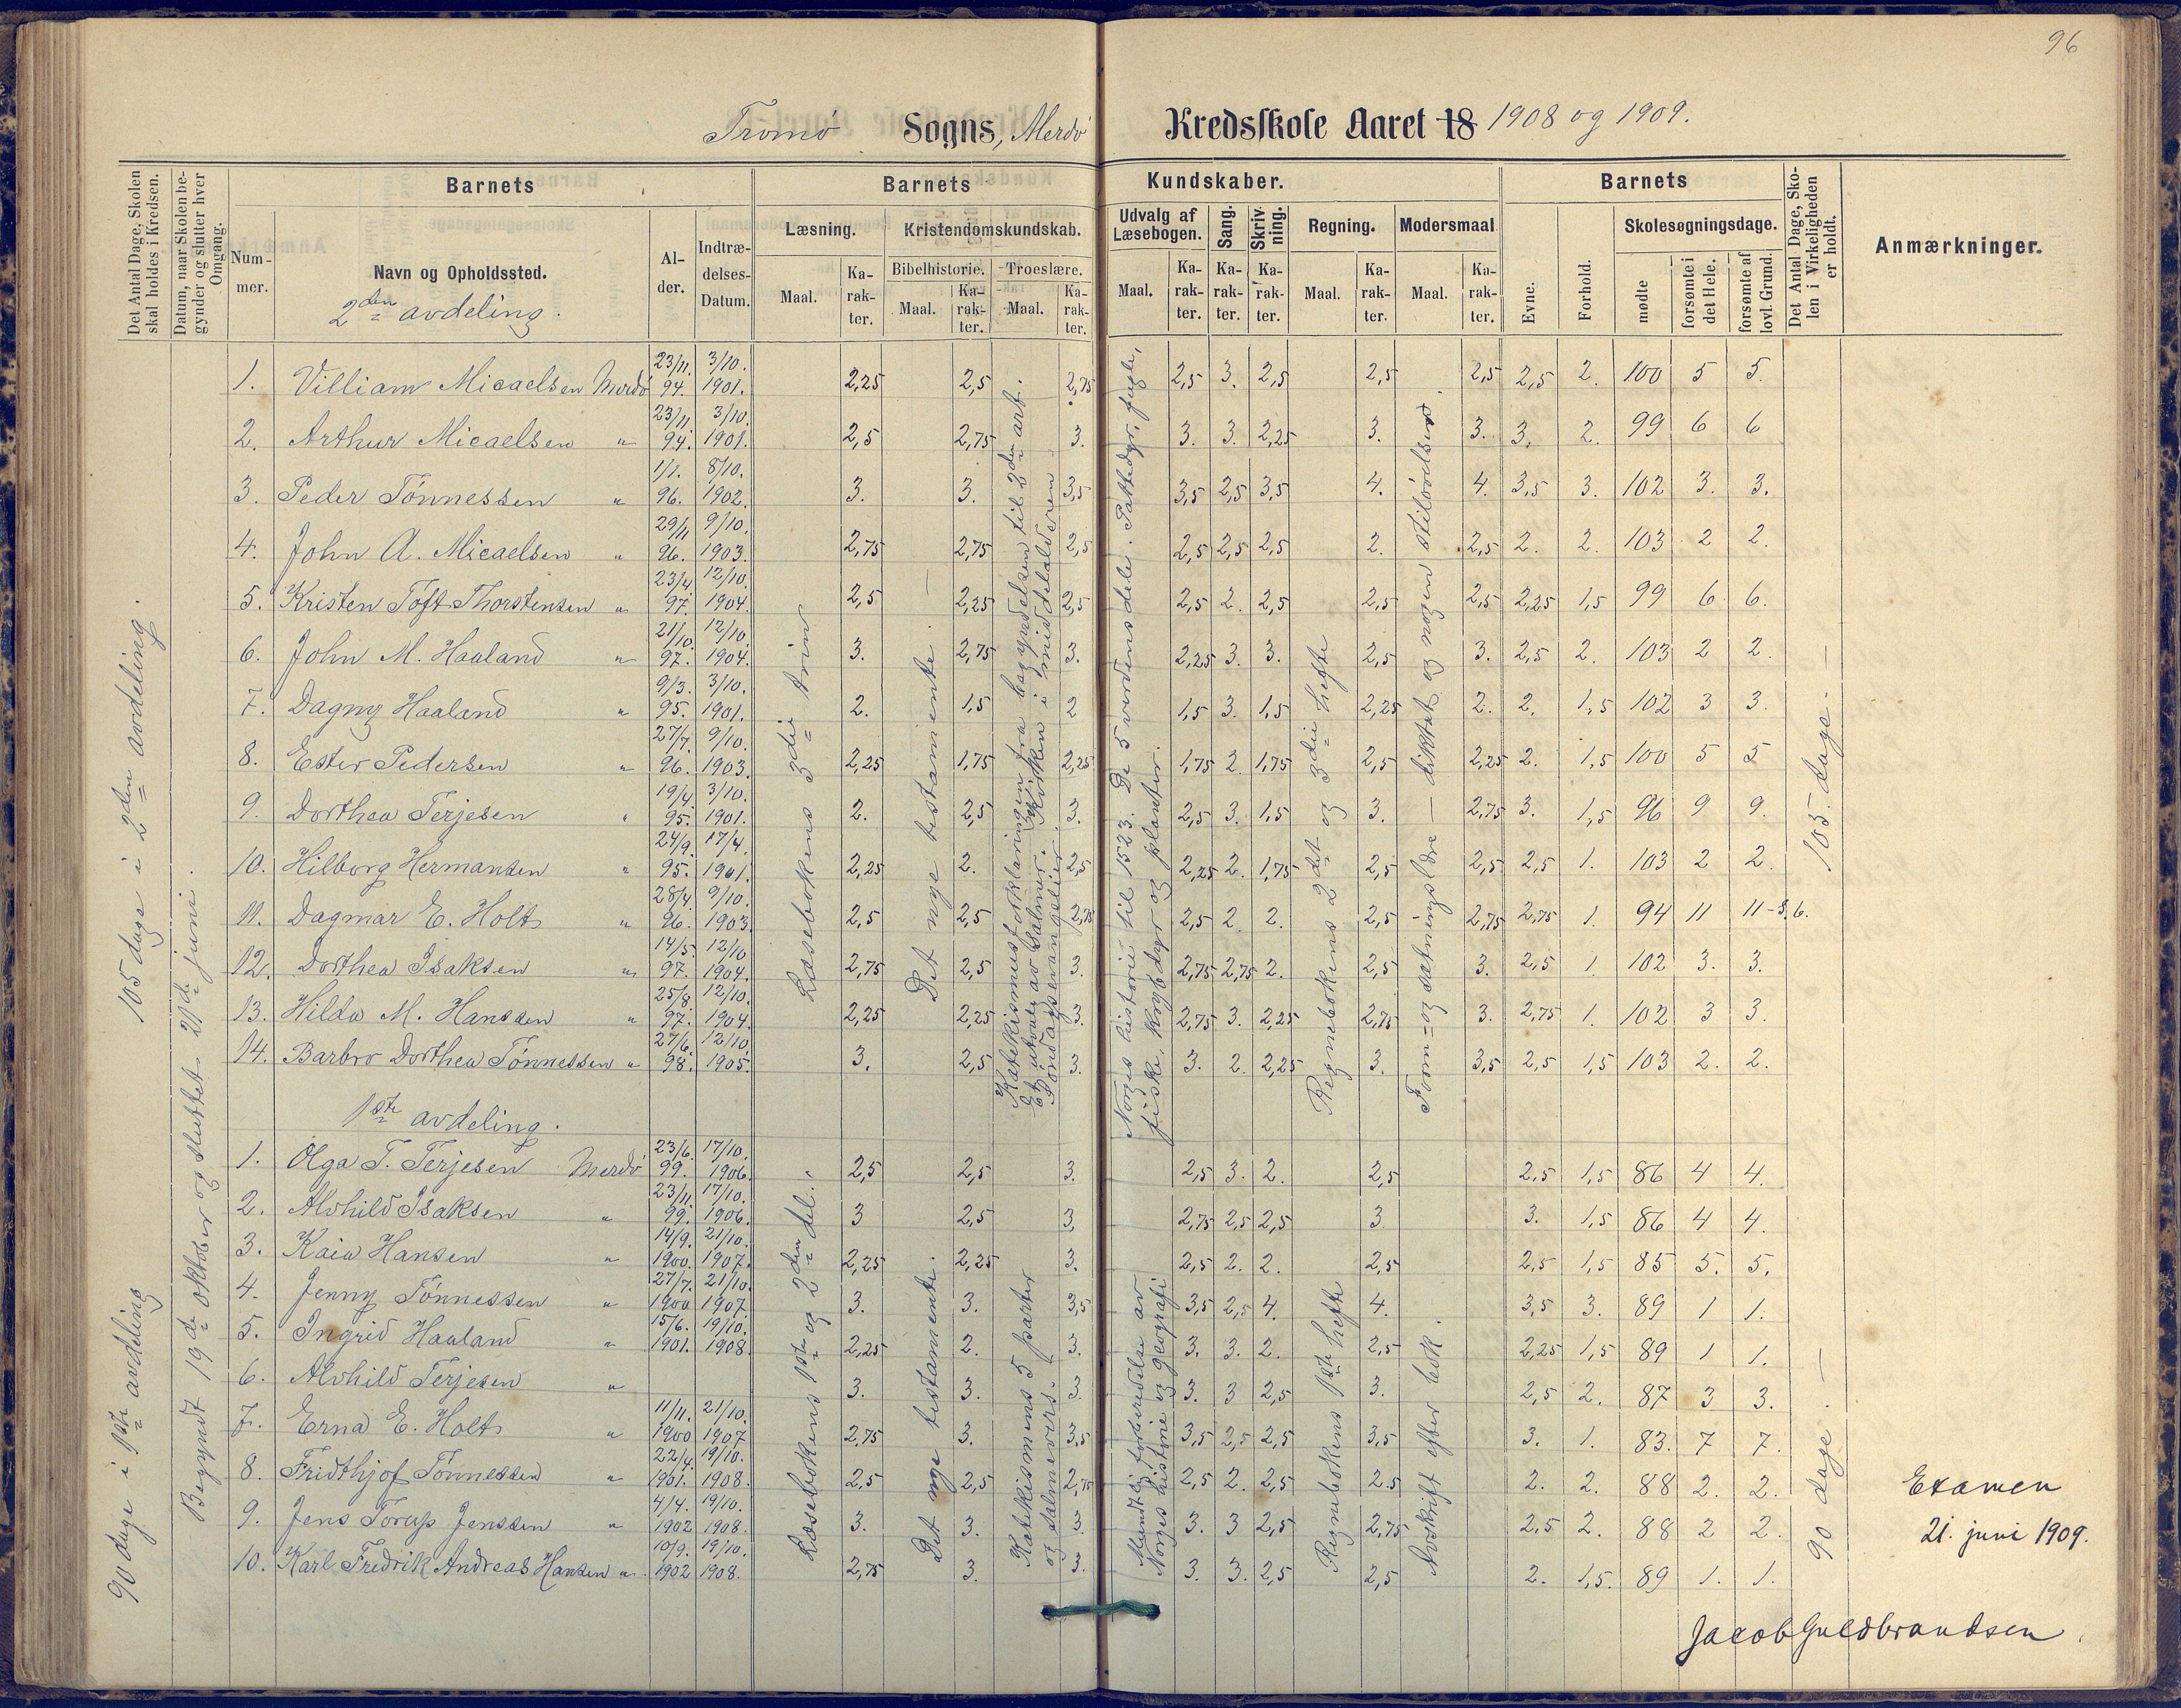 96
Tromø Sogns, Merdø Kredsskole Aaret 18 1908 og 1909.
Det Antal Dage, Skolen skal holdes i Kredsen.
Datum, naar Skolen begynder og slutter hver Omgang.
Barnets
Barnets Kundskaber.
Barnets
Det Antal Dage, Skolen i Virkeligheden er holdt.
Anmærkninger.
Nummer.
Navn og Opholdssted.
Alder.
Indtrædelses-Datum.
Læsning.
Kristendomskundskab.
Bibelhistorie. Troeslære.
Udvalg af Læsebogen.
Sang.
Skrivning.
Regning.
Modersmaal
Evne.
Forhold.
Skolesøgningsdage.
mødte
forsømte i det Hele.
forsømte af lovl. Grund.
Maal. Karakter. Maal. Karakter. Maal. Karakter. Maal. Karakter. Karakter. Karakter. Maal. Karakter. Maal. Karakter.
2den avdeling.
1. Villiam Micaelsen Merdø 23/11. 94. 3/10. 1901. 2,25 2,5 2,75 2,5 3. 2,5 2,5 2,5 2,5 2. 100 5 5.
2. Arthur Micaelsen " 23/11 94. 3/10. 1901. 2,5 2,75 3. 3. 3. 2,25 3. 3. 3. 2. 99 6 6
3. Peder Tønnessen " 1/1. 96. 8/10. 1902. 3. 3. 3,5 3,5 2,5 3,5 4. 4. 3,5 3. 102 3. 3.
4. John A. Micaelsen " 29/11 96. 9/10. 1903. 2,75 2,75 2,5 2,5 2,5 2,5 2. 2,5 2. 2. 103 2 2.
5. Kristen Toft Thorstensen " 23/4 97. 12/10. 1904. 2,5 2,25 2,5 2,5 2. 2,5 2,5 2,5 2,25 1,5 99 6 6.
6. John M. Haaland " 21/10. 97. 12/10. 1904. 3. 2,75 3. 2,25 3. 3. 2,5 3. 2,5 2. 103 2 2.
7. Dagny Haaland " 9/3. 95. 3/10. 1901. 2. 1,5 2 1,5 3. 1,5 2,25 2. 2. 1,5 102 3 3.
8. Ester Pedersen " 27/7. 96. 9/10. 1903. 2,25 1,75 2,25 1,75 2 1,75 2,5 2,25 2. 1,5 100 5 5
9. Dorthea Terjesen " 19/4 95. 3/10. 1901. 2. 2,5 3. 2,5 3. 1,5 3. 2,75 3. 1,5 96 9 9.
10. Hilborg Hermansen " 24/9. 95. 17/4. 1901. 2,25 2. 2,5 2,25 2. 1,75 2,5 2,5 2,5 1. 103 2 2.
11. Dagmar E. Holt " 28/4. 96. 9/10. 1903. 2,5 2,5 2,75 2,5 2 2. 2,5 2,75 2,75 1. 94 11 11-s.6.
12. Dorthea Isaksen " 14/5. 97. 12/10 1904. 2,75 2,5 3. 2,75 2,75 2. 2,5 3. 2,5 1. 102 3. 3.
13. Hilda M. Hanssen " 25/8 97. 12/10. 1904. 2,25 2,25 3. 2,75 3. 2,25 2,75 3. 2,75 1. 102 3 3.
14. Barbro Dorthea Tønnessen " 27/6. 98. 12/10 1905. 3. 2,5 3. 3. 2. 2,25 3. 3,5 2,5 1,5 103 2. 2.
105 dage i 2den avdeling.
Begyndt 19de oktober og sluttet 21de juni.
Læsebokens 3die trin
Det nye testamente. —
Katekismusforklaringen fra begyndelsen til 3den art.
Et utvalg av salmer. Kirken i middelalderen.
Søndagsevangelier.
Norges historie til 1523. De 5 verdensdele. Pattedyr, fugle,
fiske, krybdyr og planter.
Regnebokens 2det og 3die hefte
Form= og sætningslære — diktat og nogen stiløvelser.
105 dage. —
1ste avdeling.
1. Olga T. Terjesen Merdø 23/6. 99. 17/10. 1906. 2,5 2,5 3. 2,5 3. 2. 2,5 2,5 1,5 86 4 4.
2. Alvhild Isaksen " 23/11 99. 17/10. 1906. 3 2,5 3. 2,75 2,5 2,5 3 3. 1,5 86 4 4.
3. Kaia Hansen " 14/9. 1900. 21/10. 1907. 2,25 2,25 3. 2,5 2. 2. 2,5 2,5 1,5 85 5. 5.
4. Jenny Tønnessen " 27/7. 1900 21/10 1907 3. 3. 3,5 3,5 2,5 4. 4. 3,5 3. 89 1 1.
5. Ingrid Haaland " 15/6. 1901. 19/10. 1908. 2,25 2. 3. 3. 3. 2. 2,5 2,25 1,5 89 1 1.
6. Alvhild Terjesen " 3. 3. 3. 3. 3 2,5 3. 2,5 2. 87 3 3.
7. Erna E. Holt " 11/11. 1900 21/10. 1907 2,75 3. 3,5 3,5 2,5 2,5 3,5 3. 1. 83. 7 7.
8. Fridthjof Tønnessen " 22/4. 1901. 19/10. 1908. 2,5 2,5 2,75 2,5 2. 2,5 2.5 2. 2. 88 2. 2.
9. Jens Torup Jenssen " 4/4. 1902 19/10. 1908. 3. 3. 3. 3. 3 2,5 2,75 2,5 2. 88 2 2.
10. Karl Fredrik Andreas Hansen " 10/9. 1902 19/10. 1908. 2,75 3. 3. 3. 3. 2,5 2,5 2. 1,5. 89 1. 1.
90 dage i 1ste avdeling
Læsebokens 1ste og 2den del.
Det nye testamente.
Katekismens 5 parter
og salmevers.
Mundtlig forberedelse av
Norges historie og geografi
Regnebokens 1ste hefte
Avskrift efter bok.
90 dage. —
Examen
21. juni 1909.
Jacob Guldbrandsen